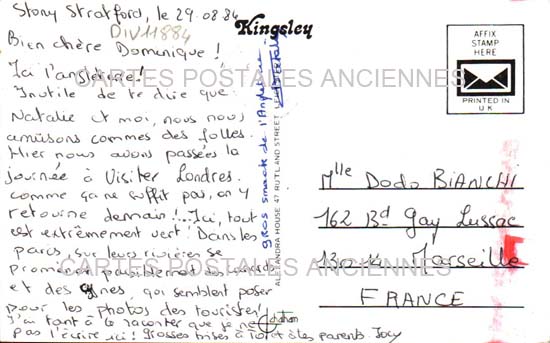 Stony Stratford, le 29.08.84
DIV11884
Bien chère Dominique !
Ici l'angleterre!
Inutile de te dire que
Natalie et moi, nous nous
amusons commes des folles.
Hier nous avons passées la
journée à Visiter Londres.
comme ça ne suffit pas, on y
retourne demain !.. Ici, tout
est extrèmement vert! Dans les
parcs, sur leurs rivières se
promènent paisiblement
et des cygnes qui semblent poser
pour les photos des touristes!
J'ai tant à te raconter que je ne
pas l'écrire ici! Grosses bises à toi et à tes parents Josy
Kingsley
gros smack de l'Angleterre
ALEXANDRA HOUSE 47 RUTLAND STREET
AFFIX
STAMP
HERE
PRINTED IN
U K
Mlle Dodo BIANCHI
162 Bd Gay Lussac
Marseille
FRANCE
CARTES POSTALES ANCIENNES
CARTES POSTALES ANCIENNES